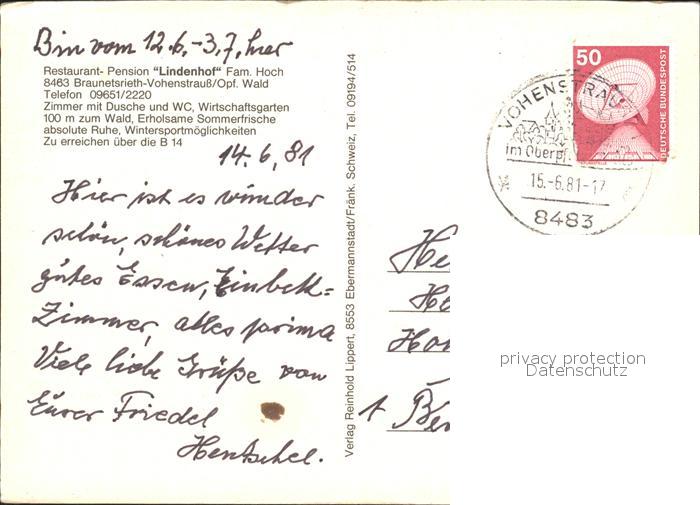 Bin vom 12.6.-3.7. hier
Restaurant- Pension "Lindenhof" Fam. Hoch
8463 Braunetsrieth-Vohenstrauß/Opf. Wald
Telefon 09651/2220
Zimmer mit Dusche und WC, Wirtschaftsgarten
100 m zum Wald, Erholsame Sommerfrische
absolute Ruhe, Wintersportmöglichkeiten
Zu erreichen über die B 14
14.6.81
Hier ist es wunder
schön, schönes Wetter
gutes Essen, Einbett=
Zimmer, alles prima
Viele liebe Grüße von
Eurer Friedel
Hentschel.
Verlag Reinhold Lippert, 8553 Ebermannstadt/Fränk. Schweiz, Tel. 09194/514
50
DEUTSCHE BUNDESPOST
VOHENSTRAU
im Oberpf
15.-6.81-17
8483
He
Ho
Hon
1 Ber
privacy protection
Datenschutz